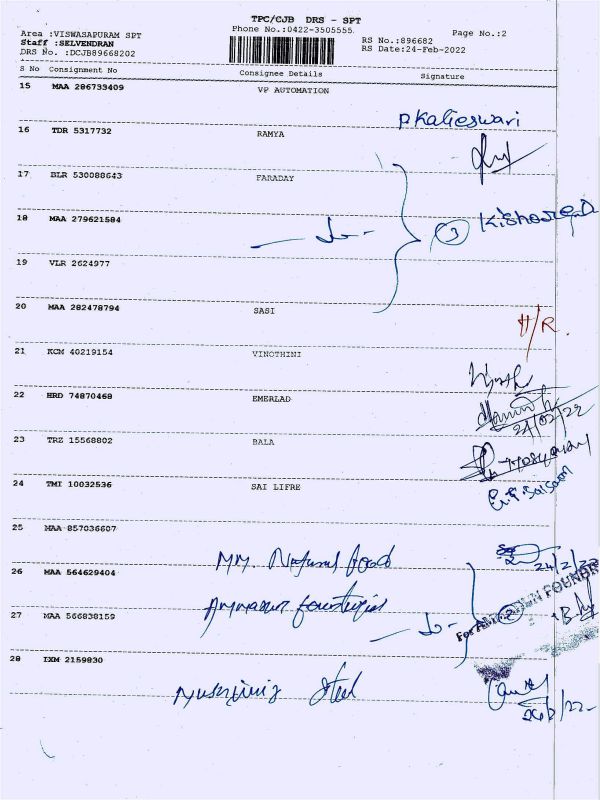 TPC/CJB DRS - SPT
Phone No.:0422-3505555
Area :VISWASAPURAM SPT
Staff :SELVENDRAN
DRS No. :DCJB89668202
RS No.:896682
RS Date:24-Feb-2022
Page No.:2
S No Consignment No Consignee Details Signature
15 MAA 286733409 VP AUTOMATION
16 TDR 5317732 RAMYA
17 BLR 530088643 FARADAY
18 MAA 279621584
3
19 VLR 2624977
20 MAA 282478794 SASI
H/R.
21 KCM 40219154 VINOTHINI
22 HRD 74870468 EMERLAD
24/02/22
23 TRZ 15568802 BALA
24 TMI 10032536 SAI LIFRE
25 MAA 857036607
MM. Natural food
24/2/22
26 MAA 564629404
27 MAA 566838159
28 IXM 2159830
Steel